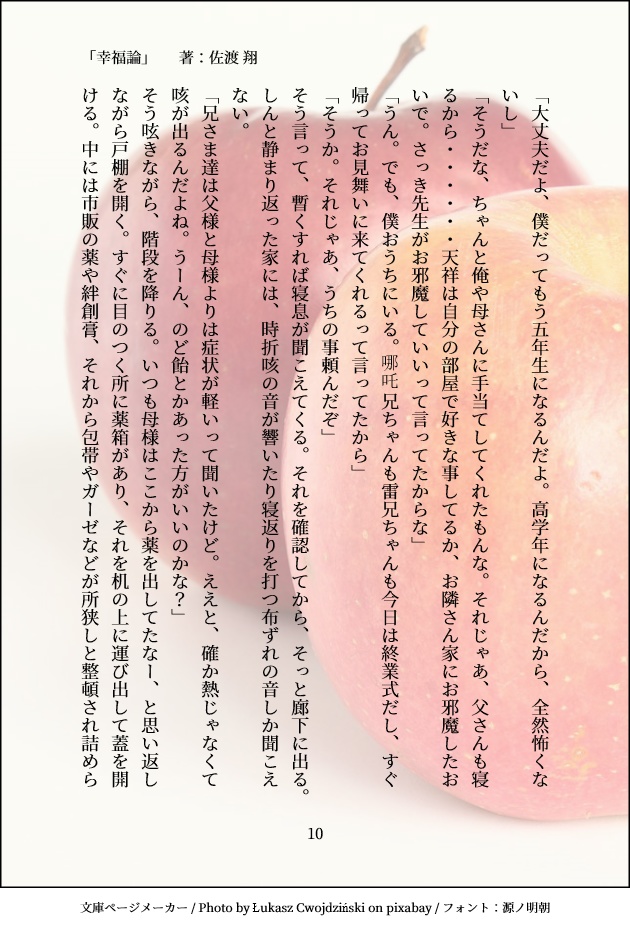 「幸福論」　著：佐渡 翔
「大丈夫だよ、僕だってもう五年生になるんだよ。高学年になるんだから、全然怖くな
いし」
「そうだな、ちゃんと俺や母さんに手当てしてくれたもんな。それじゃあ、父さんも寝
るから・・・・・・天祥は自分の部屋で好きな事してるか、お隣さん家にお邪魔したお
いで。さっき先生がお邪魔していいって言ってたからな」
「うん。でも、僕おうちにいる。哪吒兄ちゃんも雷兄ちゃんも今日は終業式だし、すぐ
帰ってお見舞いに来てくれるって言ってたから」
「そうか。それじゃあ、うちの事頼んだぞ」
そう言って、暫くすれば寝息が聞こえてくる。それを確認してから、そっと廊下に出る。
しんと静まり返った家には、時折咳の音が響いたり寝返りを打つ布ずれの音しか聞こえ
ない。
「兄さま達は父様と母様よりは症状が軽いって聞いたけど。ええと、確か熱じゃなくて
咳が出るんだよね。うーん、のど飴とかあった方がいいのかな？」
そう呟きながら、階段を降りる。いつも母様はここから薬を出してたなー、と思い返し
ながら戸棚を開く。すぐに目のつく所に薬箱があり、それを机の上に運び出して蓋を開
ける。中には市販の薬や絆創膏、それから包帯やガーゼなどが所狭しと整頓され詰めら
10
文庫ページメーカー / Photo by Łukasz Cwojdziński on pixabay / フォント：源ノ明朝